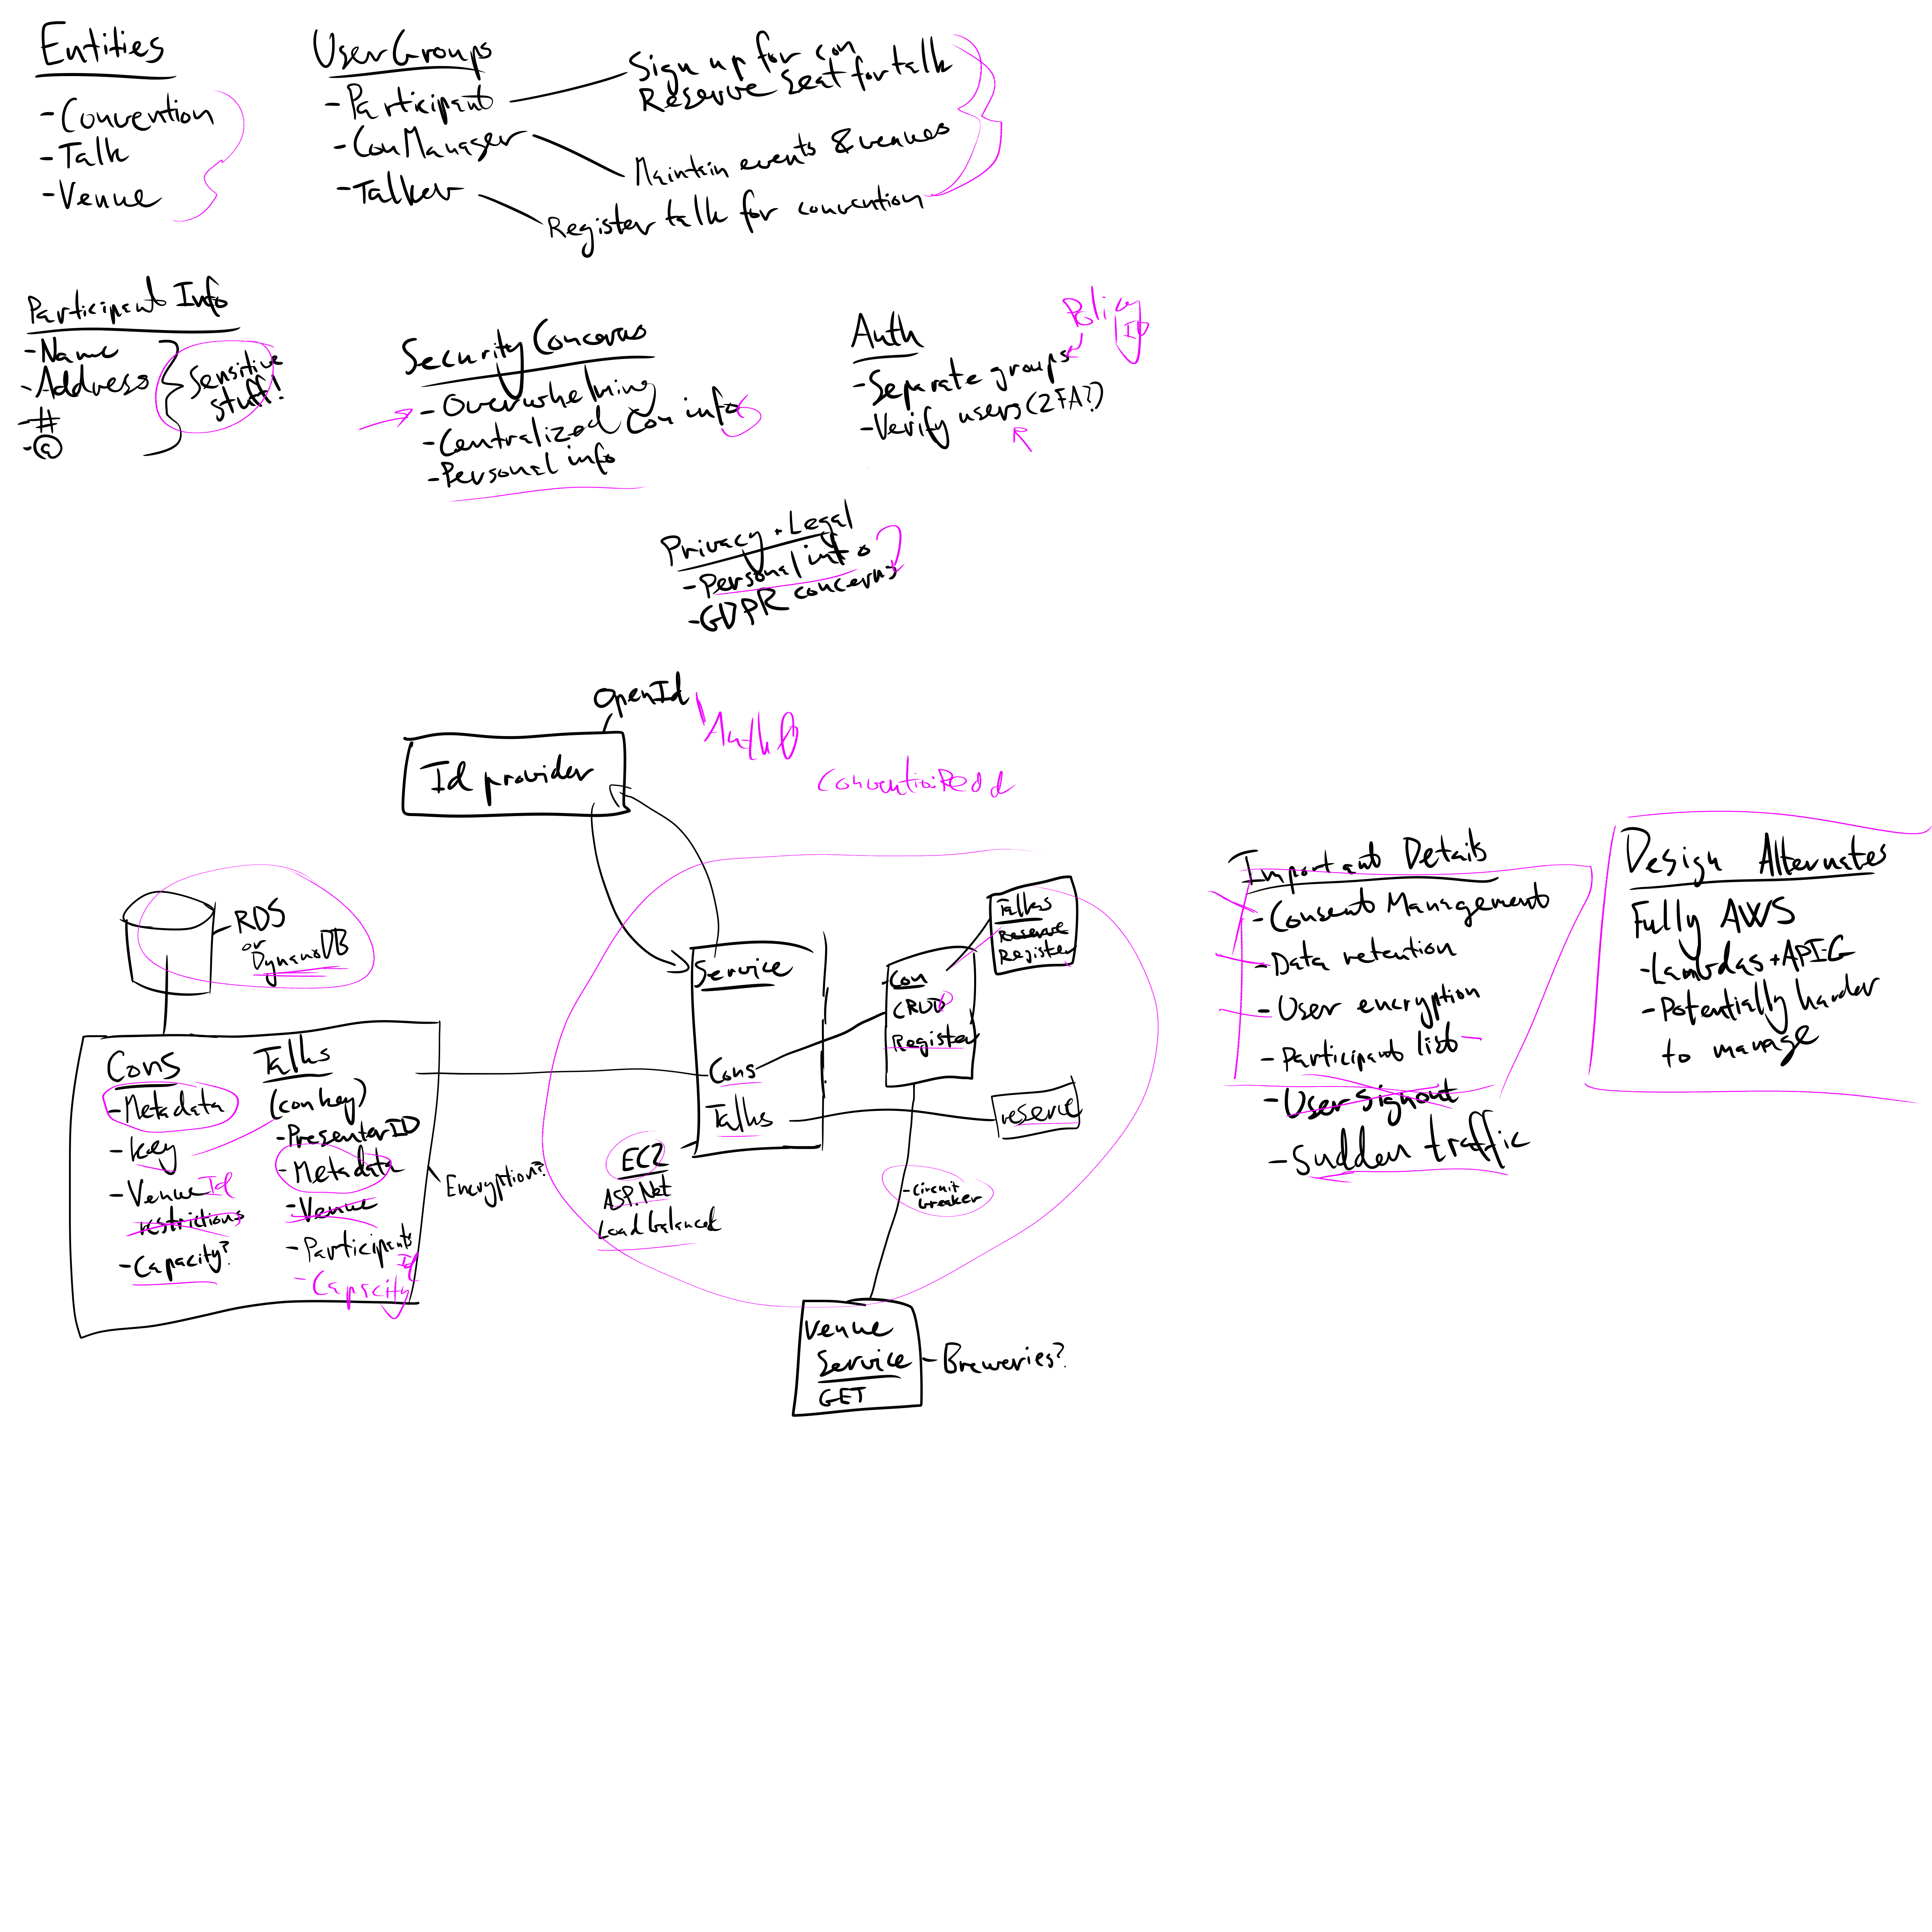 Entities
- Convention
- Talk
- Venue
UserGroups
- Participant
- ConManager
- Talker
Sign up for con
Reserve seat for talk
Maintain events & venues
Register talk for convention
Participant Info
- Name
- Address
- #
- @
Sensitive
stuff!
Security Concerns
- Overwhelming
- Centralized Con info
- Personal info
Auth
- Separate groups
- Verify users (2FA?)
Policy
ID
Privacy + Legal
- Personal info
- GDPR concerns
OpenId
Auth0
Id provider
RDS
or
DynamoDB
Cons
- Metadata
- Key
- Venue Id
restrictions
- Capacity?
Talks
(con key)
- PresenterID
- Metadata
- Venue
- Participants
Id
- Capacity
Encryption?
Service
Cons
Talks
EC2
ASP.Net
Load balancer
- Con
CRUD
Register
Talks
Reserve
Register
reserve
- Circuit
breaker
Venue
Service
GET
- Breweries?
Important Details
- Consent Management
- Data retention
- User encryption
- Participant list
- User signout
- Sudden traffic
Design Alternates
Fully AWS
- Lambdas + API-G
- Potentially harder
to manage